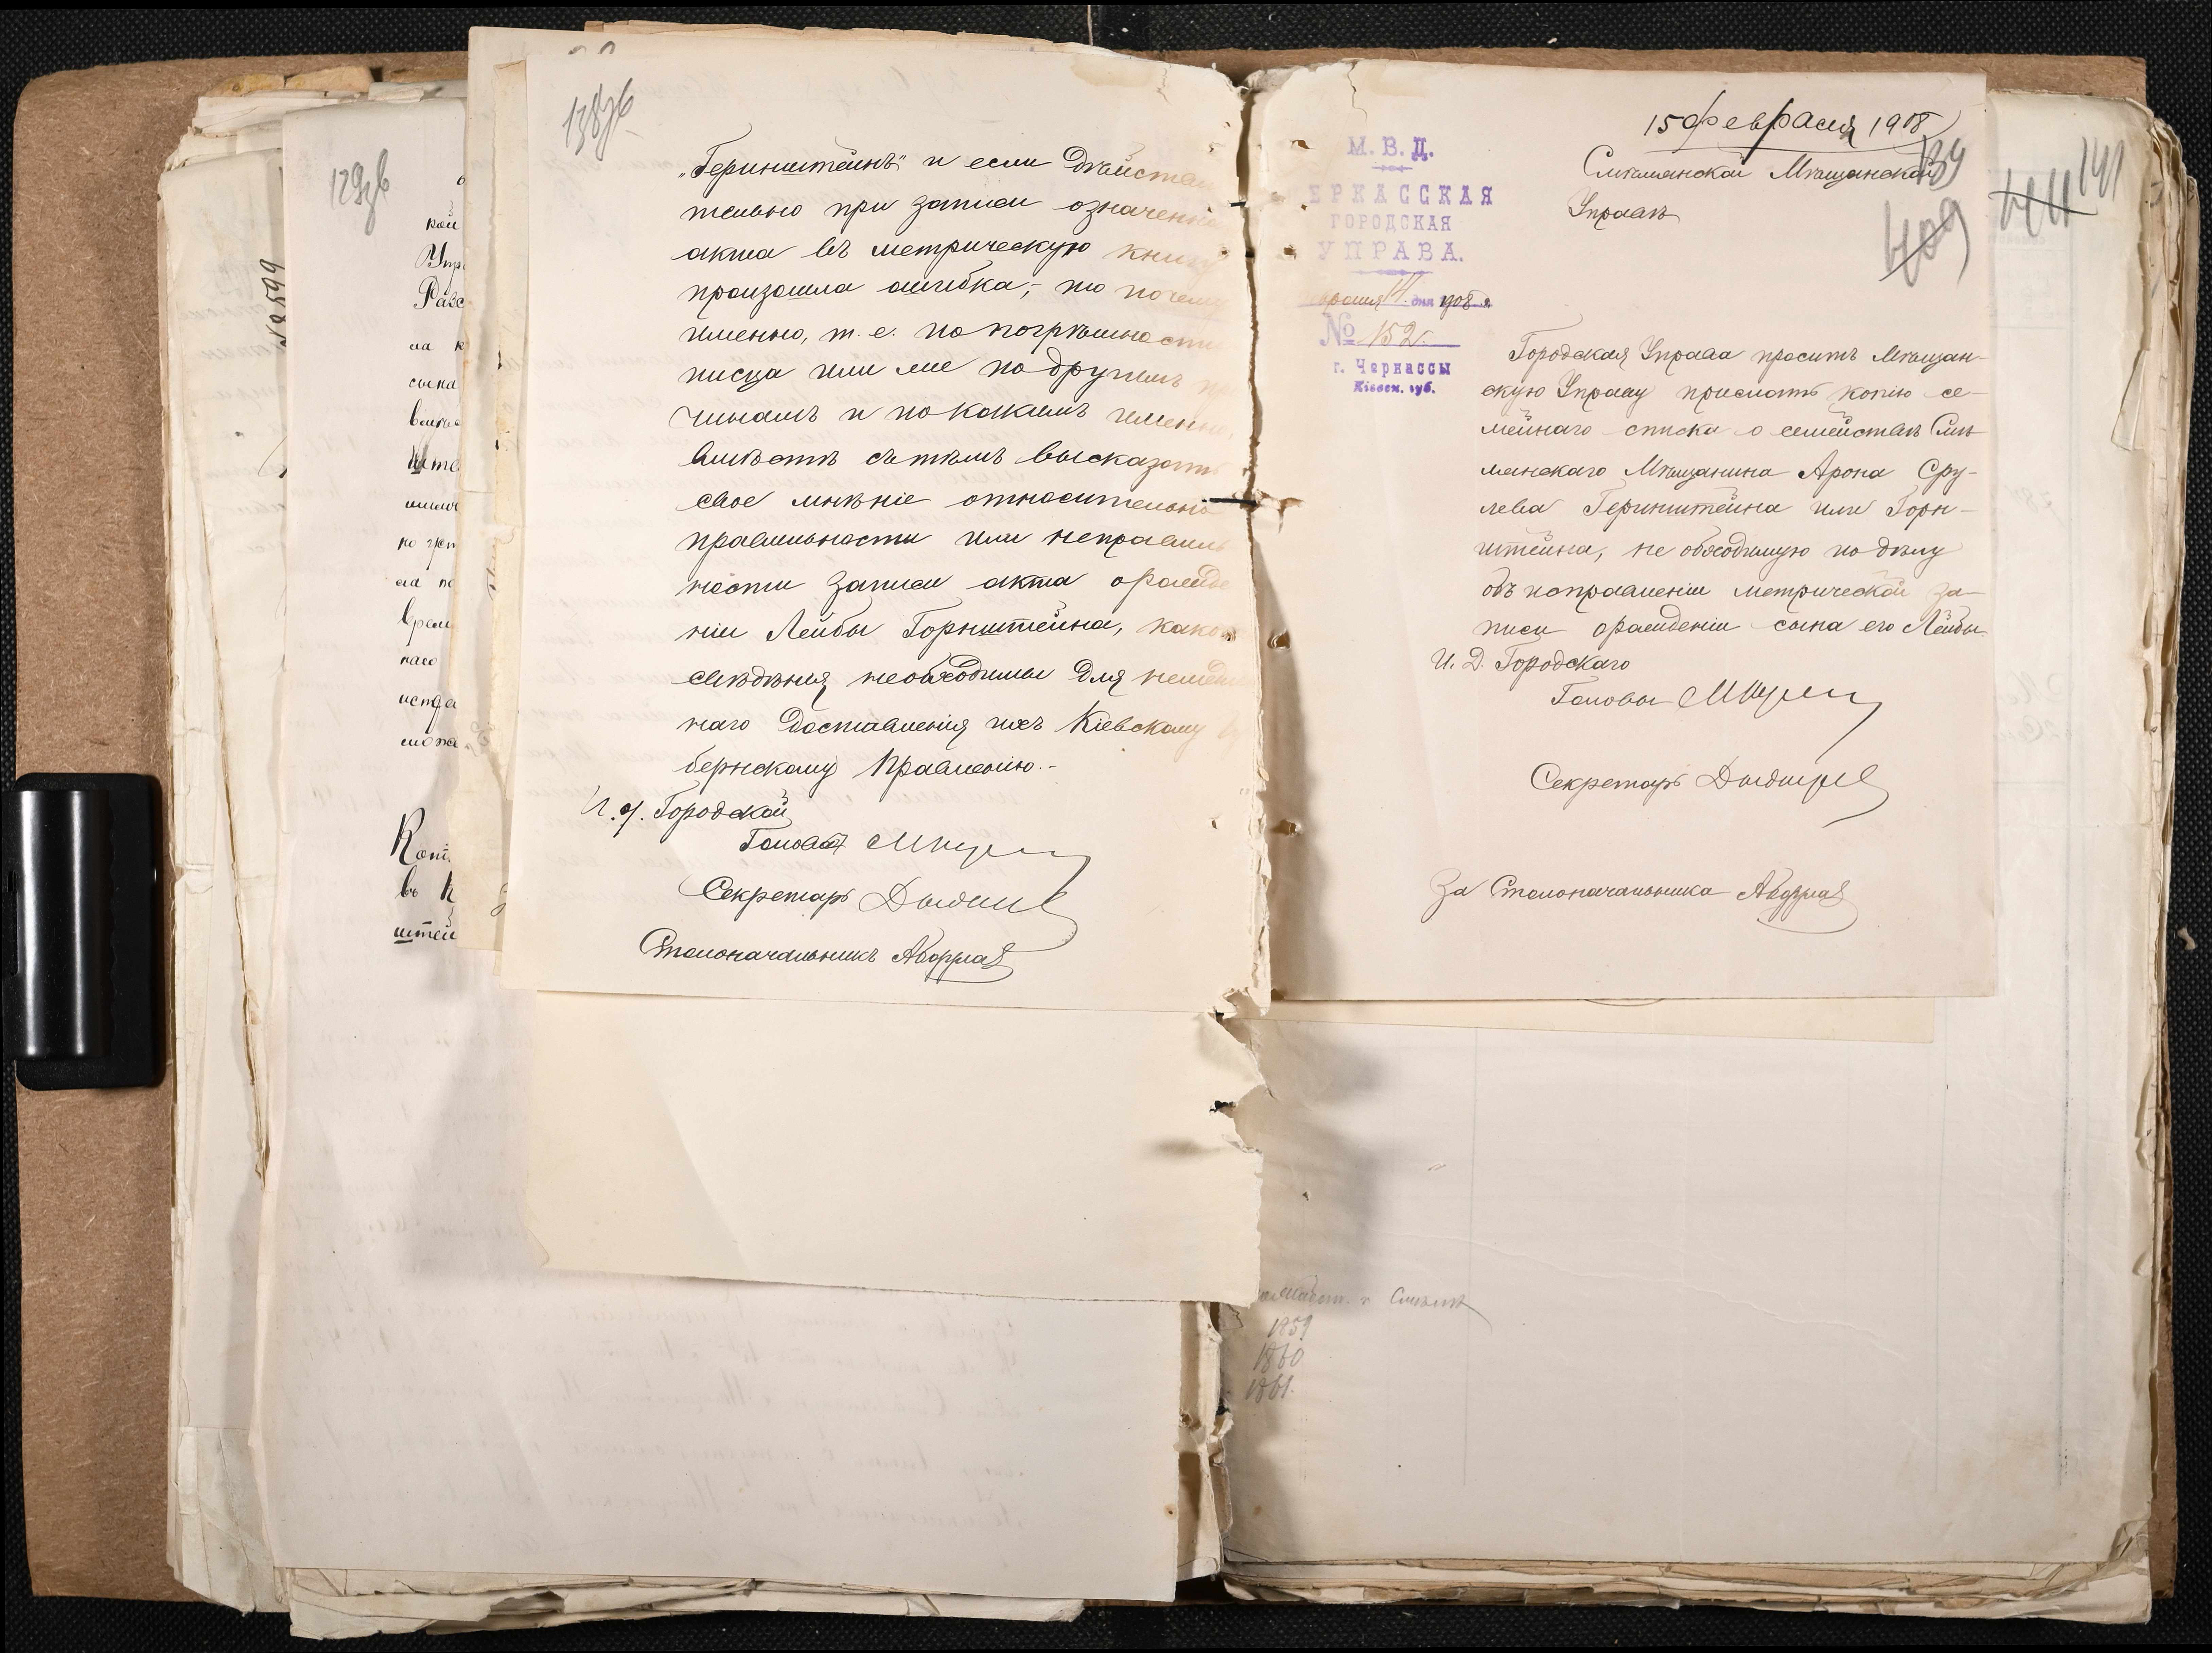 129зв
кой
Упр
ла к
сына
Ште
ла по
врем
наго
Копі
въ К
штей
№ 2599
138зв
„Геринштейнъ" и если действи
тельно при записи означенна
акта въ метрическую книгу
произошла ошибка, то почему
именно, т. е. по погрѣшности
писца или же по другимъ пр
чинамъ и по какимъ именно,
вмѣстѣ съ тѣмъ высказать
свое мнѣніе относительно
правильности или неправиль
ности записи акта о рожде
ніи Лейбы Горнштейна, како
свѣдѣнія необходимы для немедл
наго доставленія ихъ Кіевскому Гу
бернскому Правленію.-
И. д. Городской
Голова
Секретарь
Столоначальникъ
М. В. Д.
ЕРКАССКАЯ
ГОРОДСКАЯ
УПРАВА.
враля 14 дня 1908 г.
№ 152.
г. Черкассы
Кіевск. губ.
15 февраля 1908
Смѣлянской Мѣщанской
Управѣ
139
409
411 141
Городская Управа проситъ Мѣщан-
скую Управу прислать копію се-
мейнаго списка о семействѣ Смѣ
лянскаго Мѣщанина Арона Сру-
лева Геринштейна или Горн-
штейна, необходимую по дѣлу
объ исправленіи метрической за-
писи о рожденіи сына его Лейбы.
И. Д. Городского
Головы
Секретарь
За Столоначальника
г. Смѣлѣ
1859
1860
1861.